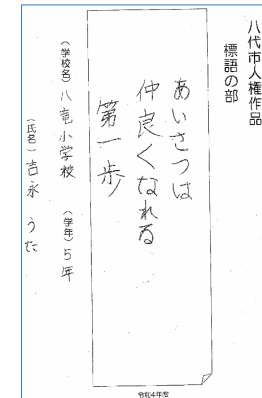 八代市人権作品
標語の部
あいさつは
仲良くなれる
第一歩
(学校名) 八竜小学校 (学年) 5年
(氏名) 吉永 うた
令和4年度